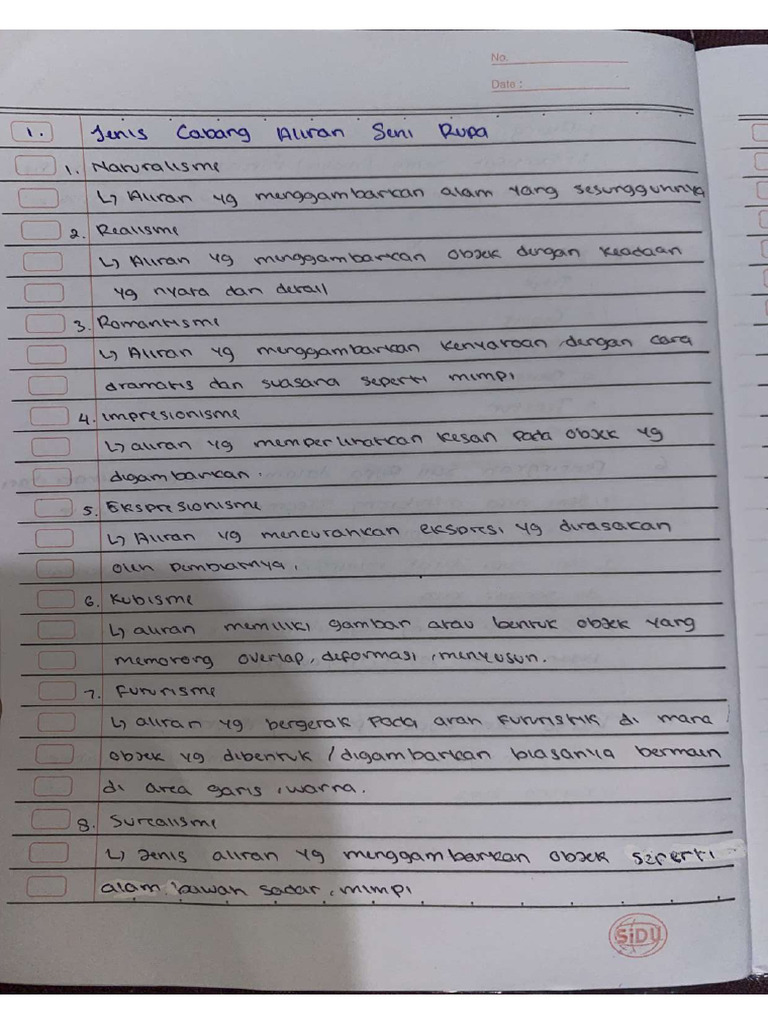 No.
Date :
1. Jenis Cabang Aliran Seni Rupa
1. Naturalisme
↳ Aliran yg menggambarkan alam yang sesungguhnya
2. Realisme
↳ Aliran yg menggambarkan objek dengan keadaan
yg nyata dan detail
3. Romantisme
↳ Aliran yg menggambarkan kenyataan dengan cara
dramatis dan suasana seperti mimpi
4. impresionisme
↳ aliran yg memperlihatkan kesan pada objek yg
digambarkan.
5. Ekspresionisme
↳ Aliran yg mencurahkan ekspresi yg dirasakan
oleh pembuatnya.
6. Kubisme
↳ aliran memiliki gambar atau bentuk objek yang
memotong overlap, deformasi, menyusun.
7. Futurisme
↳ aliran yg bergerak pada arah futuristik di mana
objek yg dibentuk / digambarkan biasanya bermain
di area garis, warna.
8. Surealisme
↳ Jenis aliran yg menggambarkan objek seperti
alam bawah sadar, mimpi
SiDU